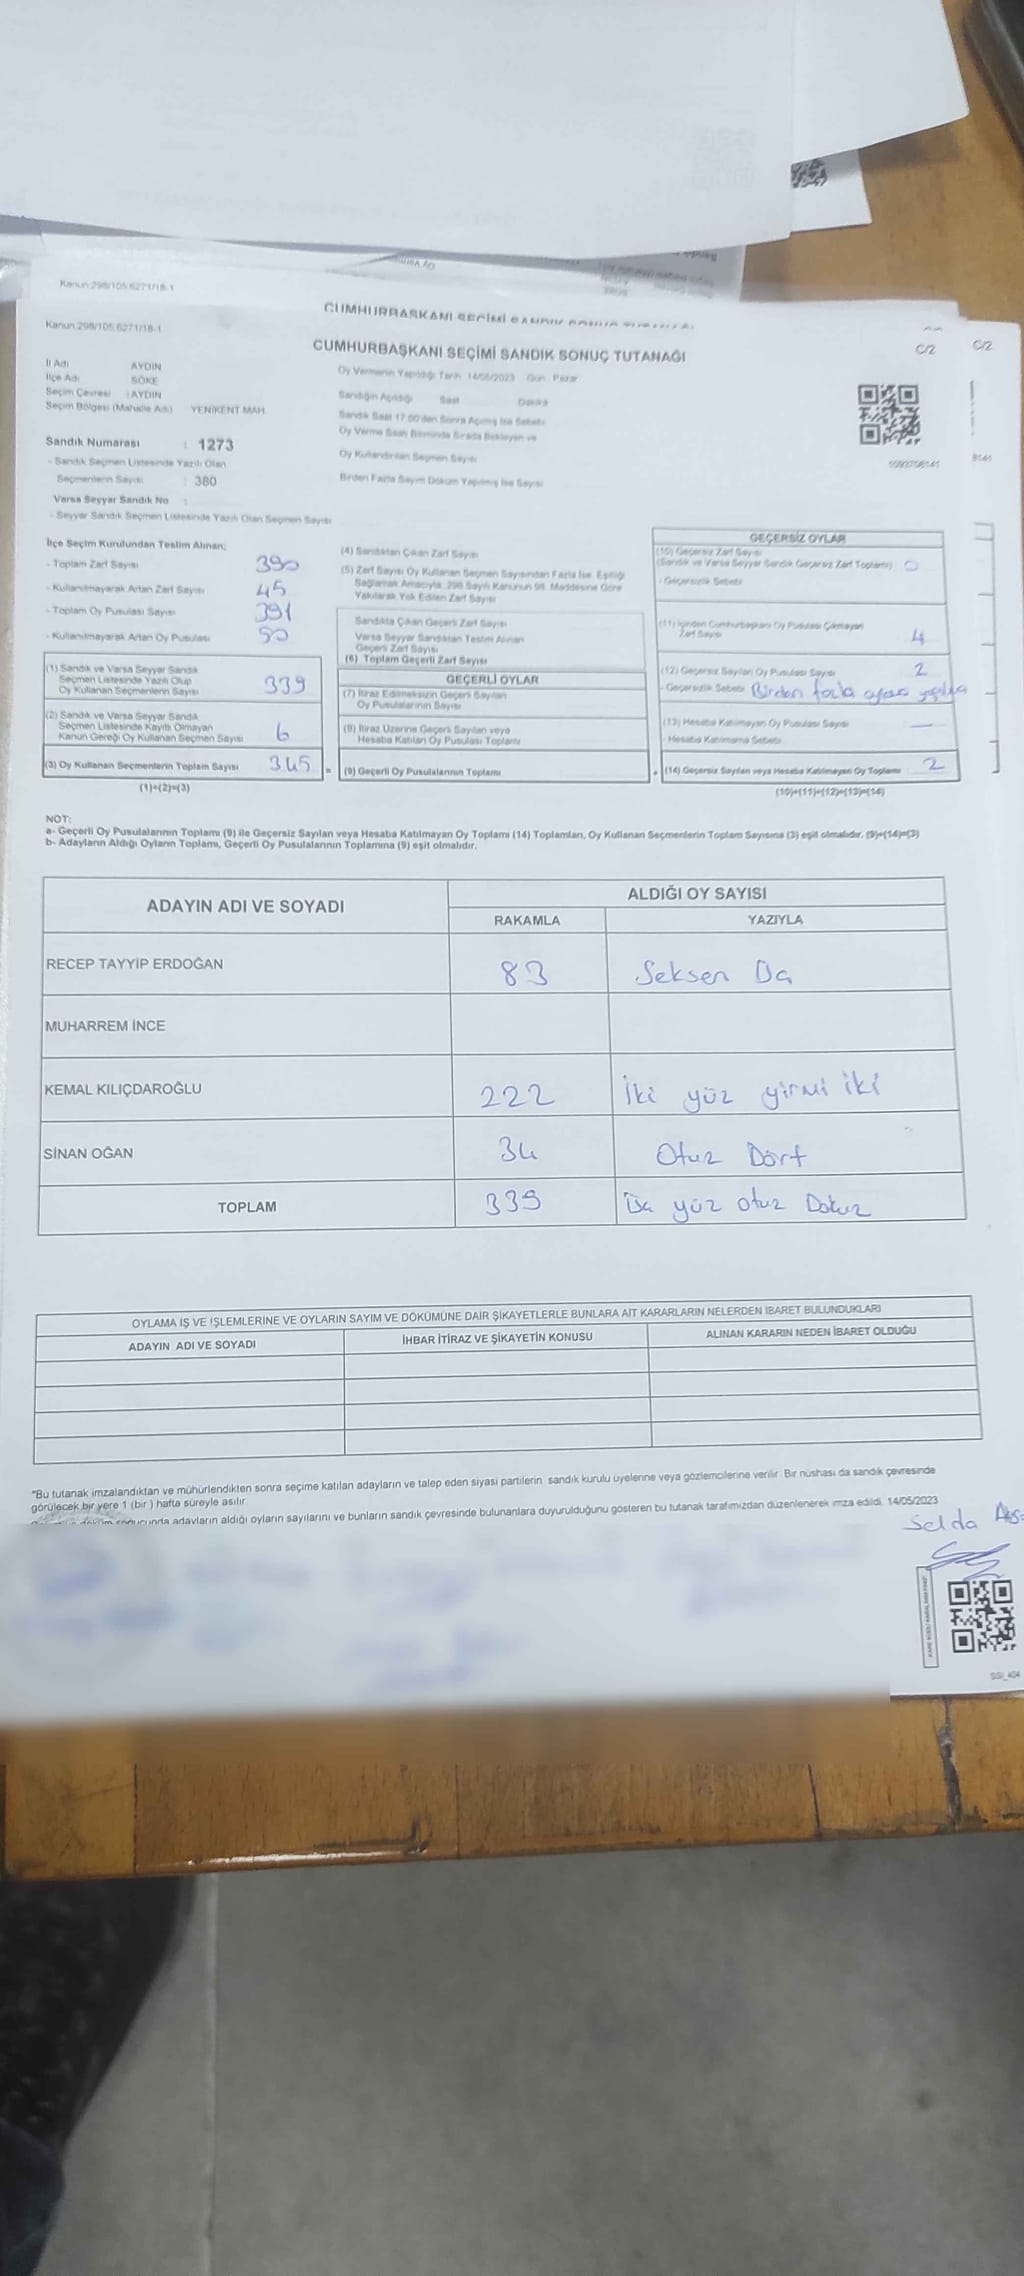 Kanun:298/105,6271/18-1
CUMHURBAŞKANI SEÇİMİ SANDIK SONUÇ TUTANAĞI
Kanun:298/105,6271/18-1
C/2
C/2
CUMHURBAŞKANI SEÇİMİ SANDIK SONUÇ TUTANAĞI
İl Adı : AYDIN
İlçe Adı : SÖKE
Seçim Çevresi : AYDIN
Seçim Bölgesi (Mahalle Adı) YENİKENT MAH.
Oy Vermenin Yapıldığı Tarih 14/05/2023 Gün : Pazar
Sandığın Açıldığı Saat Dakika
Sandık Saat 17:00'den Sonra Açılmış İse Sebebi
Oy Verme Saati Bitiminde Sırada Bekleyen ve
Oy Kullandırılan Seçmen Sayısı
Birden Fazla Sayım Döküm Yapılmış İse Sayısı
Sandık Numarası : 1273
- Sandık Seçmen Listesinde Yazılı Olan
Seçmenlerin Sayısı : 380
Varsa Seyyar Sandık No :
- Seyyar Sandık Seçmen Listesinde Yazılı Olan Seçmen Sayısı
İlçe Seçim Kurulundan Teslim Alınan;
- Toplam Zarf Sayısı 390
- Kullanılmayarak Artan Zarf Sayısı 45
- Toplam Oy Pusulası Sayısı 391
- Kullanılmayarak Artan Oy Pusulası 50
(1) Sandık ve Varsa Seyyar Sandık
Seçmen Listesinde Yazılı Olup
Oy Kullanan Seçmenlerin Sayısı 339
(2) Sandık ve Varsa Seyyar Sandık
Seçmen Listesinde Kayıtlı Olmayan
Kanun Gereği Oy Kullanan Seçmen Sayısı 6
(3) Oy Kullanan Seçmenlerin Toplam Sayısı 345 =
(1)+(2)=(3)
(4) Sandıktan Çıkan Zarf Sayısı
(5) Zarf Sayısı Oy Kullanan Seçmen Sayısından Fazla İse, Eşitliği
Sağlamak Amacıyla, 298 Sayılı Kanunun 98. Maddesine Göre
Yakılarak Yok Edilen Zarf Sayısı
Sandıkta Çıkan Geçerli Zarf Sayısı
Varsa Seyyar Sandıktan Teslim Alınan
Geçerli Zarf Sayısı
(6) Toplam Geçerli Zarf Sayısı
GEÇERLİ OYLAR
(7) İtiraz Edilmeksizin Geçerli Sayılan
Oy Pusulalarının Sayısı
(8) İtiraz Üzerine Geçerli Sayılan veya
Hesaba Katılan Oy Pusulası Toplamı
(9) Geçerli Oy Pusulalarının Toplamı +
GEÇERSİZ OYLAR
(10) Geçersiz Zarf Sayısı
(Sandık ve Varsa Seyyar Sandık Geçersiz Zarf Toplamı) 0
- Geçersizlik Sebebi
(11) İçinden Cumhurbaşkanı Oy Pusulası Çıkmayan
Zarf Sayısı 4
(12) Geçersiz Sayılan Oy Pusulası Sayısı 2
- Geçersizlik Sebebi Birden fazla
(13) Hesaba Katılmayan Oy Pusulası Sayısı —
- Hesaba Katılmama Sebebi
(14) Geçersiz Sayılan veya Hesaba Katılmayan Oy Toplamı : 2
(10)+(11)+(12)+(13)=(14)
NOT:
a- Geçerli Oy Pusulalarının Toplamı (9) ile Geçersiz Sayılan veya Hesaba Katılmayan Oy Toplamı (14) Toplamları, Oy Kullanan Seçmenlerin Toplam Sayısına (3) eşit olmalıdır. (9)+(14)=(3)
b- Adayların Aldığı Oyların Toplamı, Geçerli Oy Pusulalarının Toplamına (9) eşit olmalıdır.
ADAYIN ADI VE SOYADI
ALDIĞI OY SAYISI
RAKAMLA YAZIYLA
RECEP TAYYİP ERDOĞAN 83 Seksen Üç
MUHARREM İNCE
KEMAL KILIÇDAROĞLU 222 İki yüz yirmi iki
SİNAN OĞAN 34 Otuz Dört
TOPLAM 339 Üç yüz otuz Dokuz
OYLAMA İŞ VE İŞLEMLERİNE VE OYLARIN SAYIM VE DÖKÜMÜNE DAİR ŞİKAYETLERLE BUNLARA AİT KARARLARIN NELERDEN İBARET BULUNDUKLARI
ADAYIN ADI VE SOYADI İHBAR İTİRAZ VE ŞİKAYETİN KONUSU ALINAN KARARIN NEDEN İBARET OLDUĞU
"Bu tutanak imzalandıktan ve mühürlendikten sonra seçime katılan adayların ve talep eden siyasi partilerin sandık kurulu üyelerine veya gözlemcilerine verilir. Bir nüshası da sandık çevresinde
görülecek bir yere 1 (bir ) hafta süreyle asılır.
sonucunda adayların aldığı oyların sayılarını ve bunların sandık çevresinde bulunanlara duyurulduğunu gösteren bu tutanak tarafımızdan düzenlenerek imza edildi. 14/05/2023
Selda
SSI_404